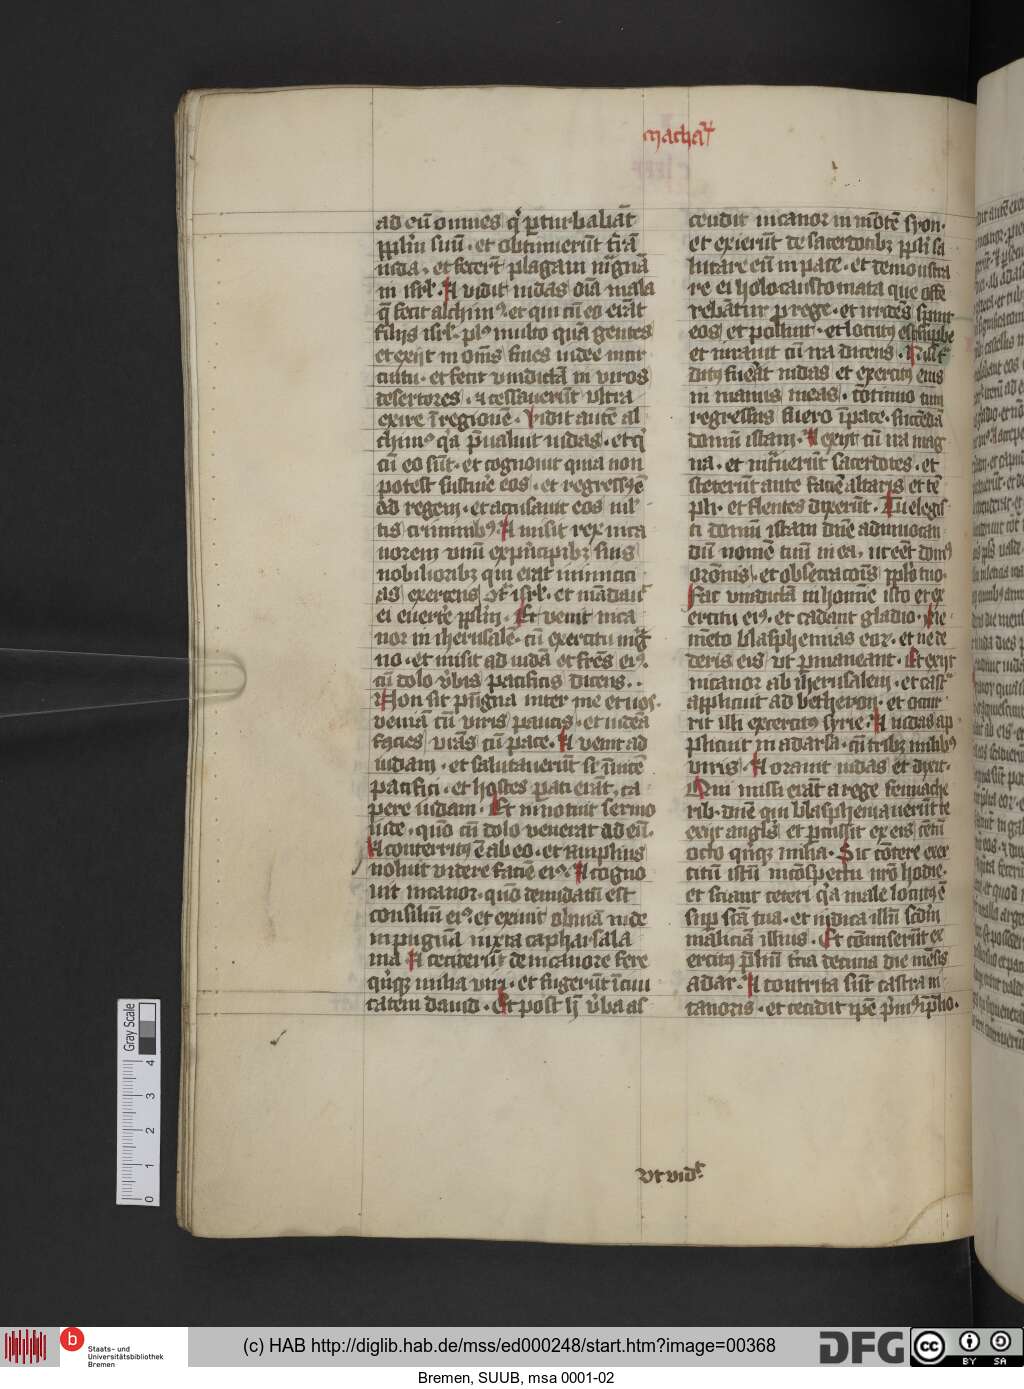 machaꝝ
ad eū omnes q̇ ꝑturbabāt
pplm̄ suū · et obtinuerūt t̄rā
iuda · et fecer̄t plagam m̄gnā
in isrl̄ · Et vidit iudas oīa mala
q̄ fecit alchim9 et qui cū eo erāt
filijs isrl̄ · pl9 multo quā gentes
et exijt in om̄s fines iudee in cir
cuitu · et fecit vindictā in viros
desertores · et cessauerūt vltra
exire ī regionē · Vidit autē al
chim9 q̇a p̄ualuit iudas · et q̇
cū eo sūt · et cognouit quia non
potest sustine eos · et regress9 ē
ad regem · et accusauit eos ml̄
tis criminib9 · Et misit rex nica
norem vnū ex p̄ncipibꝫ suis
nobilioribꝫ qui erat inimici
as exercens 9t̄ isrl̄ · et mādauit
ei euert̄e pplm̄ · Et venit nica
nor in iherusalē · cū exercitu m̄g
no · et misit ad iudā et fr̄es ei9
cū dolo v̄bis pacificis dicens ·
Non sit pugna inter me et uos ·
veniā cū viris paucis · et videā
facies vr̄as cū pace · Et venit ad
iudam · et salutauerūt se īuicē
pacifici · et hostes parati erāt · ca
pere iudam · Et innotuit sermo
iude · quō cū dolo venerat ad eū ·
Et conterrit9 ē ab eo · et amplius
noluit videre faciē ei9 · Et cogno
uit nicanor · quō denudatū est
consiliū ei9 et exiuit obuiā iude
in pugnā iuxta capharsala
ma · Et ceciderūt de nicanore fere
q̇nqꝫ milia viri · et fugerūt ī ciui
tatem dauid · Et post h̄ v̄ba as
cendit nicanor in mōtē syon ·
et exierūt de sacerdotibꝫ ppli sa
lutare eū in pace · et demonstra
re ei holocaustomata que offe
rebātur ꝓ rege · et irridēs spreuit
eos et polluit · et locut9 est supbe
et iurauit cū ira dicens · Nisi t̄
dit9 fuerit iudas et exercit9 eius
in manus meas · cōtinuo cum
regressus fuero ī pace · succēdā
domū istam · Et exijt cū ira mag
na · et intrauerūt sacerdotes · et
steterūt ante faciē altaris et tē
pli · et flentes dixerūt · Tu elegis
ti domū istam dn̄e ad inuocan
dū nomē tuū in ea · ut eēt dom9
orōnis · et obsecracōis pplo tuo ·
Fac vindictā in homīe isto et ex
ercitu ei9 · et cadant gladio · Me
mēto blasphemias eorꝝ · et ne de
deris eis vt ꝑmaneant · Et exijt
nicanor ab iherusalem · et cast̄
applicuit ad bethoron · et occur
rit illi exercit9 syrie · Et iudas ap
plicuit in adarsa · cū tribꝫ milibꝫ
viris · Et orauit iudas et dixit ·
Qui missi erāt a rege sennache
rib · dn̄e qui blasphemauerūt te
exijt angl̄s et ꝑcussit ex eis cētū
octo q̇nqꝫ milia · Sic cōtere exer
citū istū in cōspectu nr̄o hodie ·
et sciant ceteri q̇a male locut9 ē
suꝑ sc̄a tua · et iudica illū scdm̄
maliciā illius · Et cōmiserūt ex
ercit9 p̄liū t̄cia decima die mēsis
adar · Et contrita sūt castra ni
canoris · et cecidit ip̄e p̄m9 ī p̄lio ·
Vt vid̄t
Gray Scale
4
3
2
1
0
b
Staats- und
Universitätsbibliothek
Bremen
(c) HAB http://diglib.hab.de/mss/ed000248/start.htm?image=00368
DFG
cc
BY SA
Bremen, SUUB, msa 0001-02